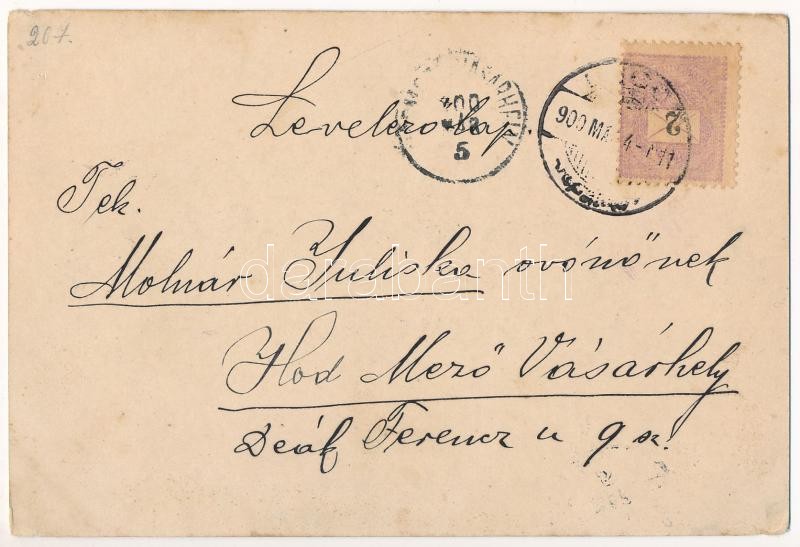 207.
Levelezőlap.
900 MÁR
5
900 MÁR 4
2
Tek.
Molnár Juliska óvónőnek
Hod Mező Vásárhely
Deák Ferencz u 9 sz.
darabanth